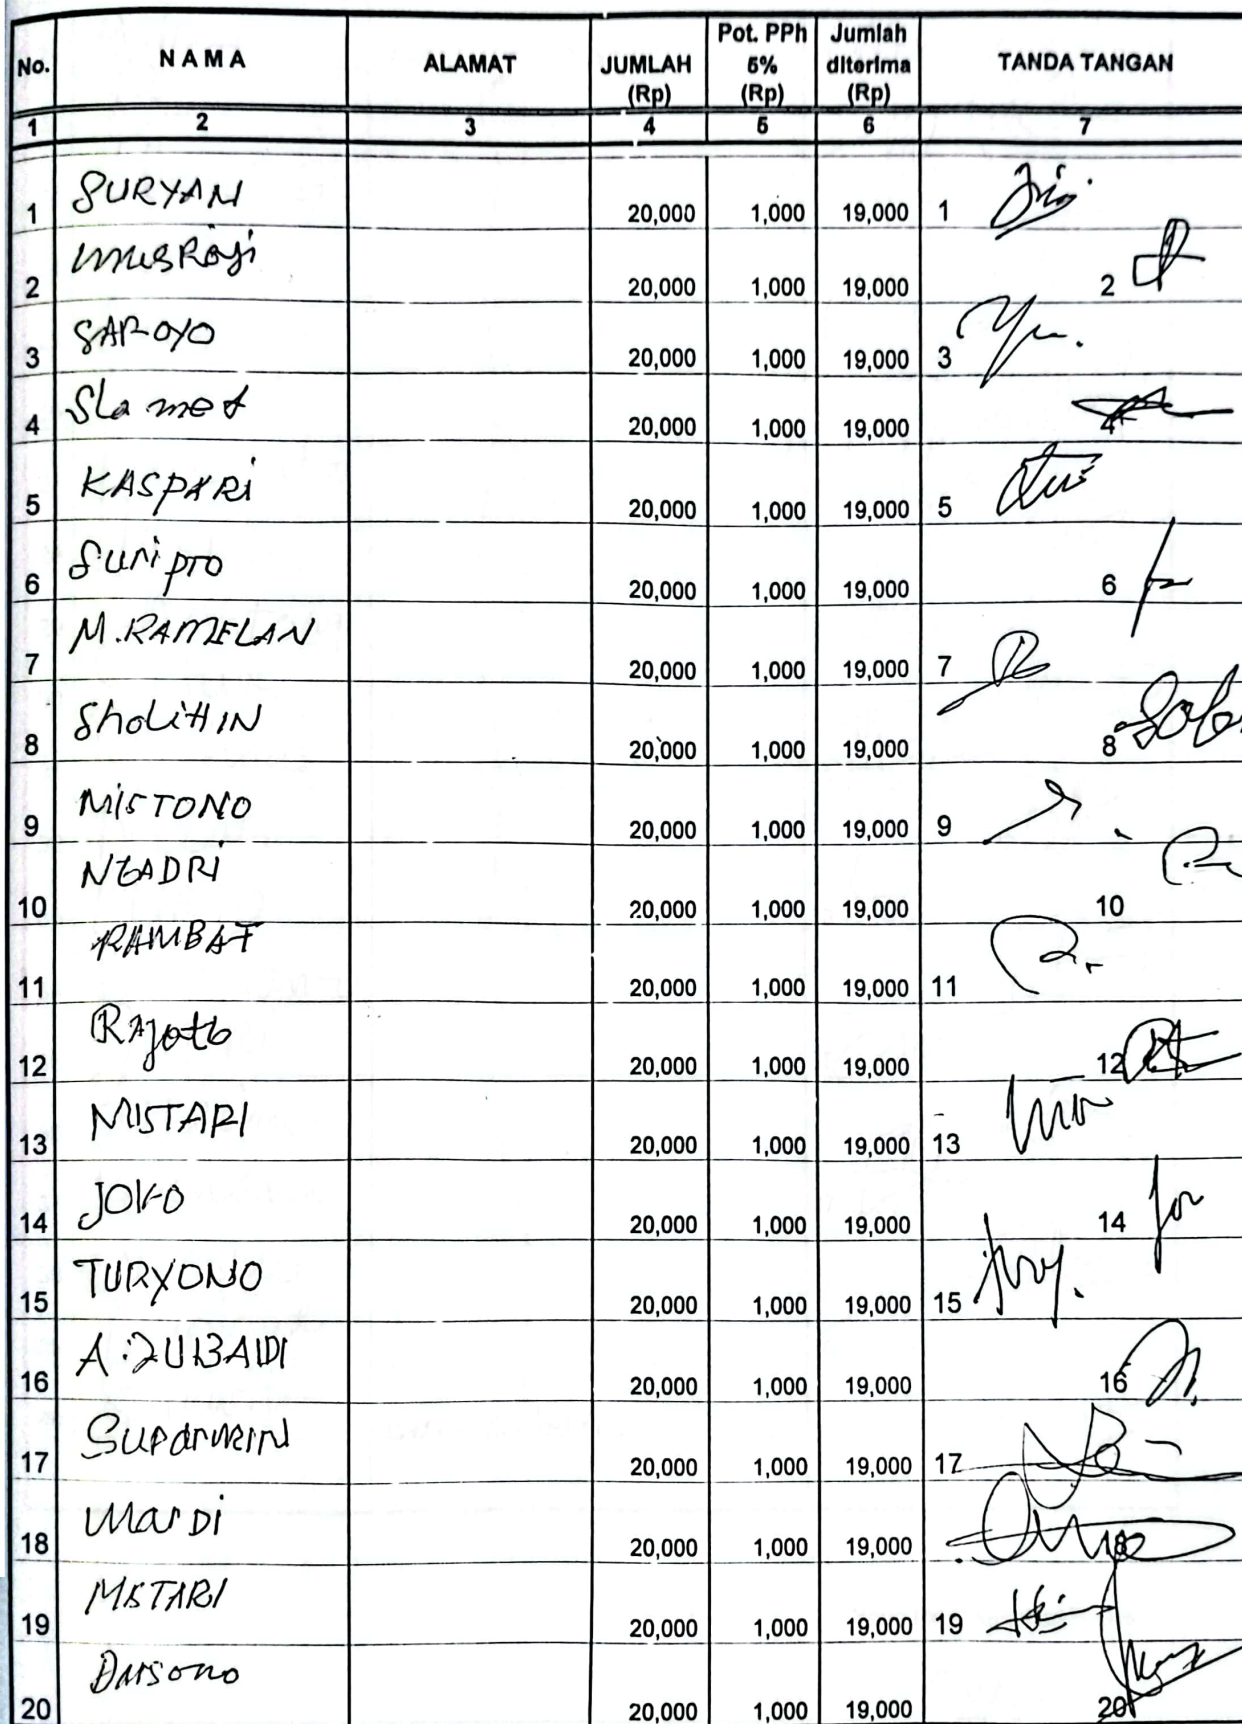 No. NAMA ALAMAT JUMLAH (Rp) Pot. PPh 5% (Rp) Jumlah diterima (Rp) TANDA TANGAN
1 2 3 4 5 6 7
1 SURYANI 20,000 1,000 19,000 1
2 musRoji 20,000 1,000 19,000 2
3 SAROYO 20,000 1,000 19,000 3
4 Slamet 20,000 1,000 19,000 4
5 KASPARI 20,000 1,000 19,000 5
6 Suripto 20,000 1,000 19,000 6
7 M.RAMELAN 20,000 1,000 19,000 7
8 SholiHIN 20,000 1,000 19,000 8
9 MISTONO 20,000 1,000 19,000 9
10 NGADRI 20,000 1,000 19,000 10
11 RAMBAT 20,000 1,000 19,000 11
12 RAjoto 20,000 1,000 19,000 12
13 MISTARI 20,000 1,000 19,000 13
14 JOKO 20,000 1,000 19,000 14
15 TURYONO 20,000 1,000 19,000 15
16 A.ZUBAIDI 20,000 1,000 19,000 16
17 20,000 1,000 19,000 17
18 MarDi 20,000 1,000 19,000 18
19 MISTARI 20,000 1,000 19,000 19
20 Darsono 20,000 1,000 19,000 20